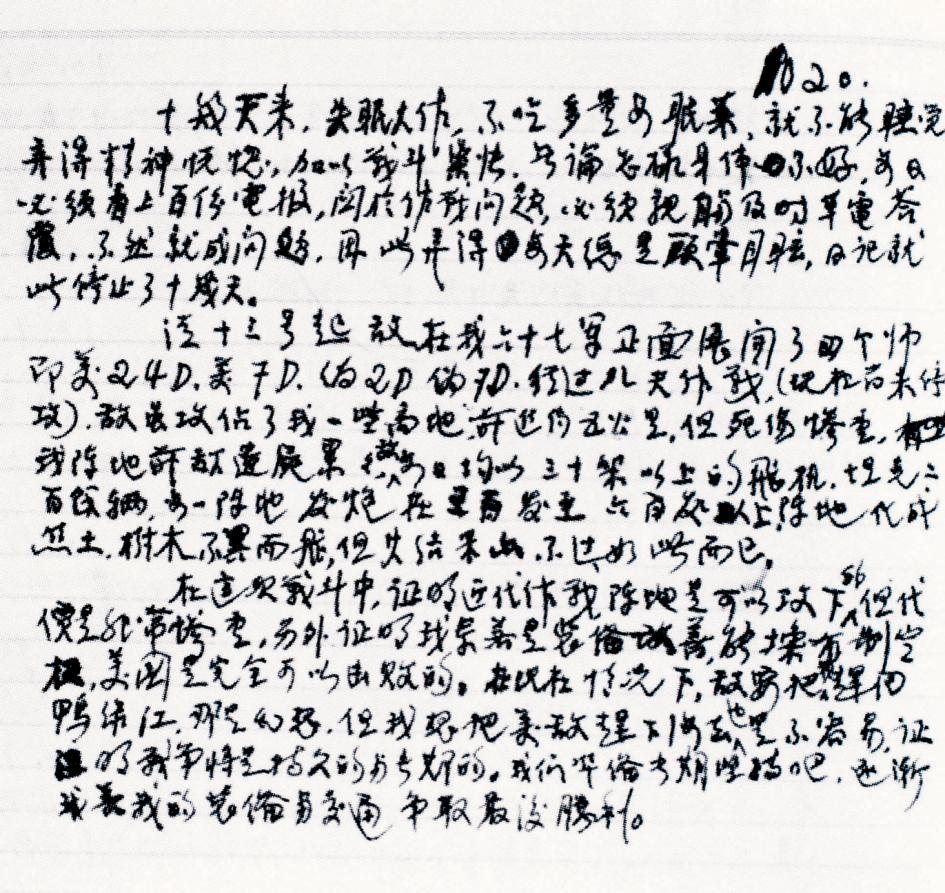 20.
十几天来，失眠大作，不吃多量安眠药，就不能睡觉
弄得精神恍惚，加以战斗紧张，无论怎样身体不好，每日
必须看上百份電报，関於作战问题，必须親自及时草電答
覆，不然就成问题，因此弄得每天总是頭暈目眩，日记就
此停止了十几天。
从十三号起敌在我六十七军正面展開了四个师
即美24D.美7D.伪2D伪7D.经过几天作战，(现在尚未停
攻)，敌虽攻佔了我一些高地，前进约五公里，但死傷惨重，
我陣地前敌遗屍累，敌每日均以三十架以上的飛机，坦克二
百餘辆，每一陣地發炮在 發至六百發以上，陣地化成
焦土，树木不翼而飛，但其结果，不过如此而已。
在这次战斗中，证明近代作战陣地是可以攻下的，但代
價是非常惨重，另外证明我若是装備改善，能掌有制空
权，美国是完全可以击败的。在此情况下，敌要把我趕回
鸭绿江，那是幻想，但我想把美敌趕下海去也是不容易，证
明战争将是持久的与长期的。我们準備长期坚持吧，逐渐
我的装備与交通，争取最後勝利。